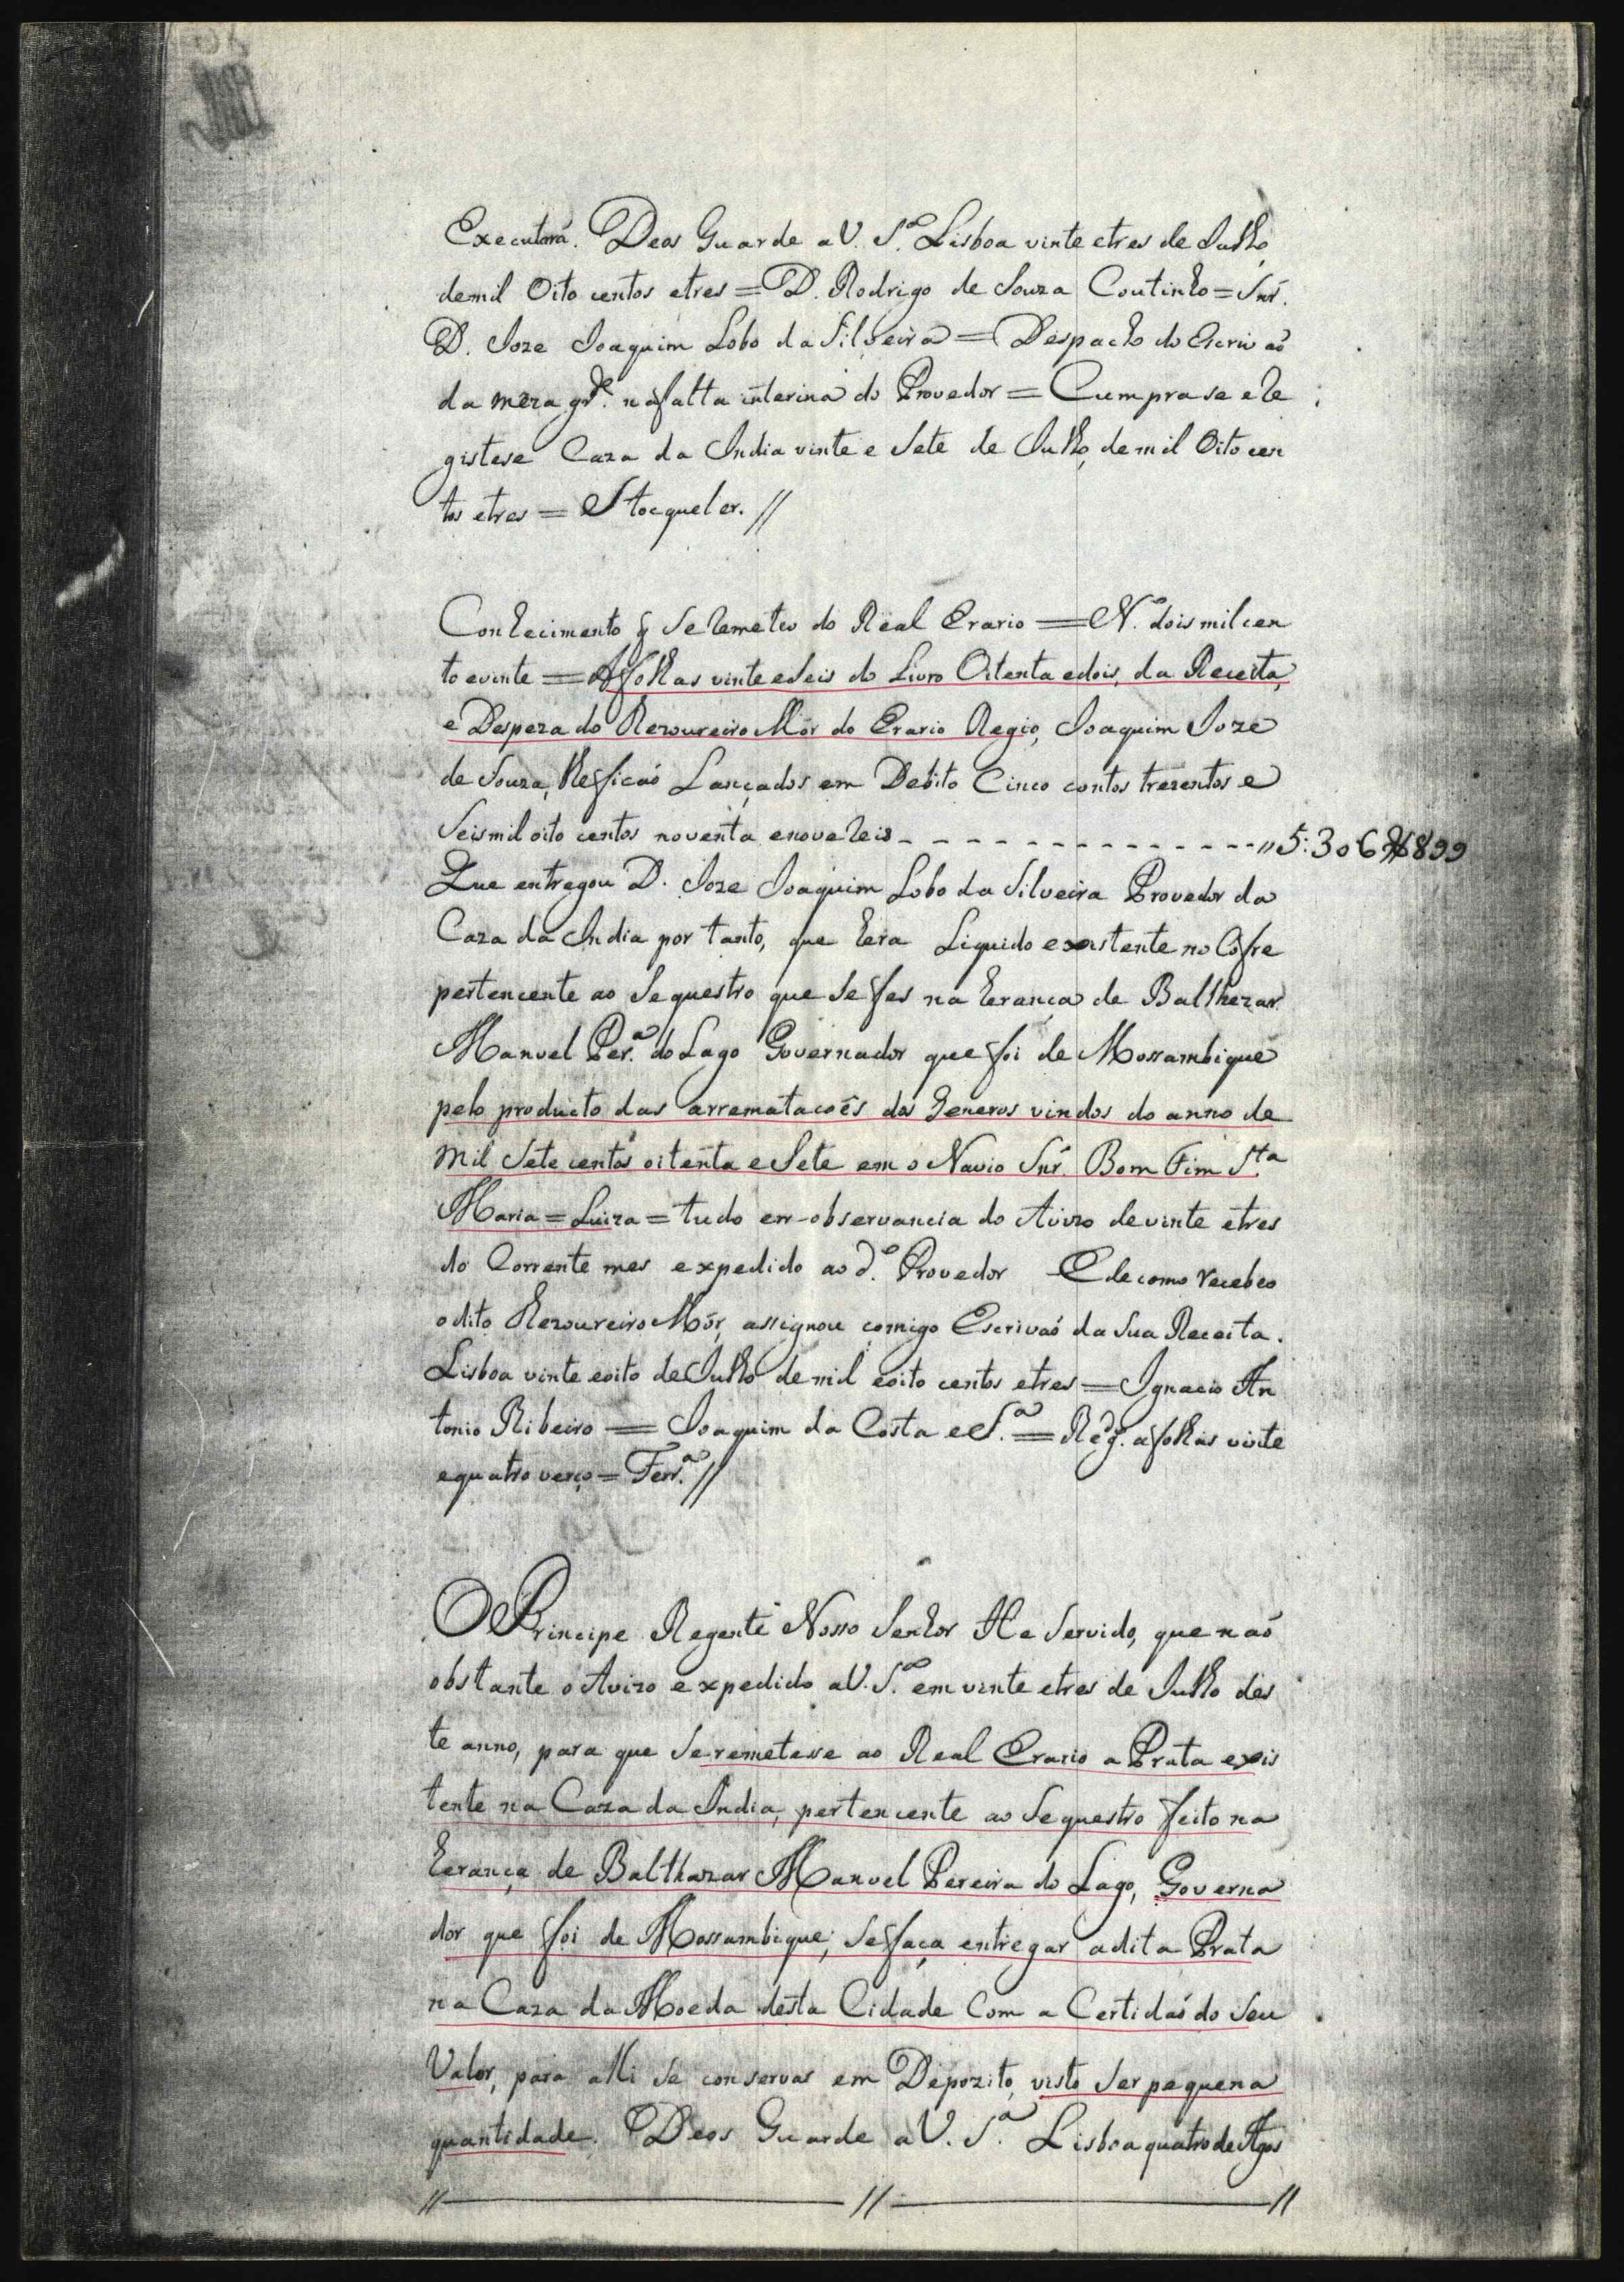 Executará. Deos Guarde a V. S.ª Lisboa vinte etres de Julho
demil Oito centos etres = D. Rodrigo de Souza Coutinho = Snr.
D. Joze Joaquim Lobo da Silveira = Despacho do Escrivaõ
da meza gr.de na falta interina do Provedor = Cumprase e Re
gistese Caza da India vinte e Sete de Julho, demil Oito cen
tos etres = Stocqueler. //
Conhecimento q̃ Se Remeteo do Real Erario = N.º dois mil cen
to evinte = Afolhas vinte eSeis do Livro Oitenta edois, da Receita,
e Despeza do Thezoureiro Mór do Erario Regio, Joaquim Joze
de Souza, lhe ficaõ Lançados em Debito Cinco contos trezentos e
Seismil oito centos noventa enove Reis - - - - - - - - - - - - - - - - „ 5:306$899
Que entregou D. Joze Joaquim Lobo da Silveira Provedor da
Caza da India por tanto, que hera Liquido existente no Cofre
pertencente ao Sequestro que Se fes na herança de Balthezar
Manoel Per.ª do Lago Governador que foi de Mossambique
pelo producto das arremataçoẽs dos Generos vindos do anno de
mil Sete centos oitenta eSete em o Navio Snr. Bom Fim S.ta
Maria = Luiza = tudo em observancia do Avizo devinte etres
do Corrente mes expedido ao d.º Provedor E decomo recebeo
odito Thezoureiro Mór, assignou comigo Escrivaõ da Sua Receita.
Lisboa vinte eoito deJulho demil eoito centos etres = Ignacio An
tonio Ribeiro = Joaquim da Costa eS.ª = Reg.º afolhas vinte
equatro verço = Ferr.ª //
O Principe Regente Nosso Senhor He Servido, que naõ
obstante o Avizo expedido aV. S.ª em vinte etres de Julho des
te anno, para que Se remetesse ao Real Erario a Prata exis
tente na Caza da India, pertencente ao Sequestro feito na
herança de Balthazar Manoel Pereira do Lago, Governa
dor que foi de Mossambique; Se faça entregar adita Prata
na Caza da Moeda desta Cidade Com a Certidaõ do Seu
Valor, para alli Se conservar em Depozito, visto Ser pequena
quantidade. Deos Guarde aV. S.ª Lisboa quatro de Agos
// ——— // ——— //